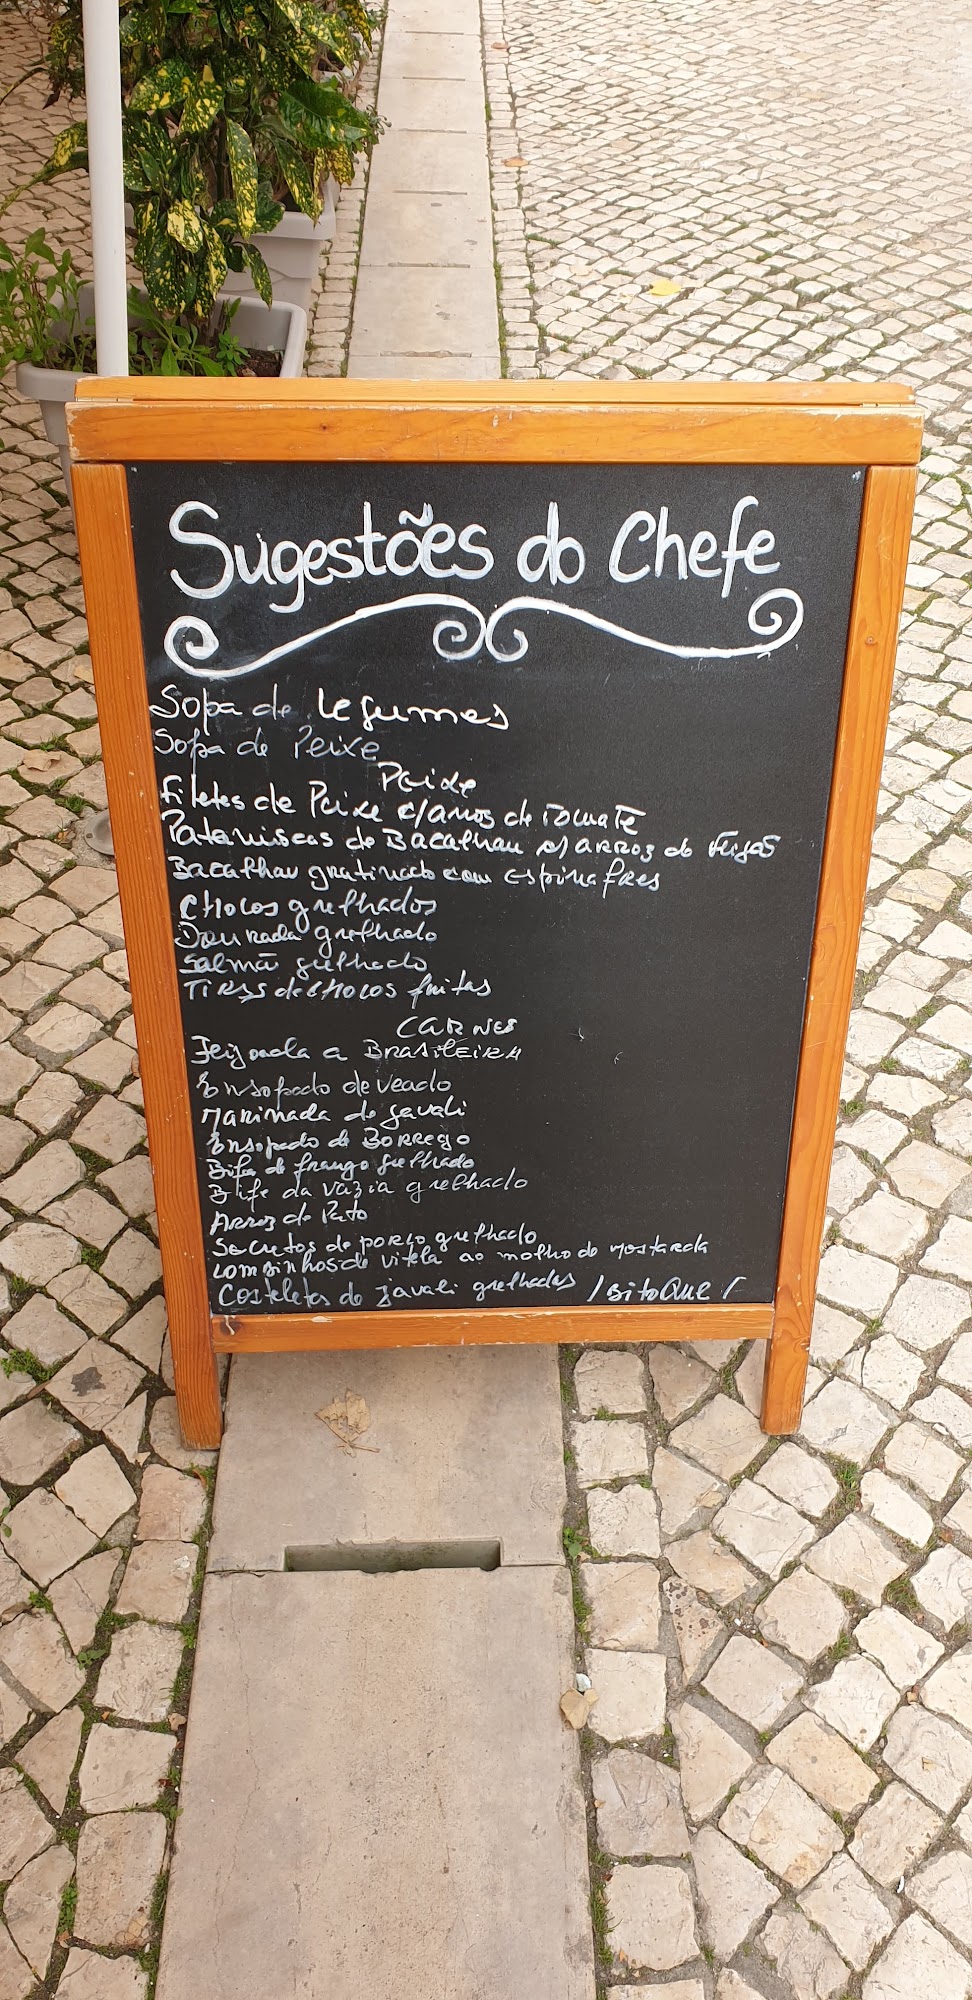 Sugestões do Chefe
Sopa de Legumes
Sopa de Peixe
Peixe
Filetes de Peixe c/arros de Tomate
Pataniscas de Bacalhau c/ARROZ de feijão
Bacalhau gratinado com espinafres
CHOCOS grelhados
Dourada grelhado
Salmão grelhado
TIRAS de CHOCOS fritas
CARNES
Feijoada a BRASILEIRA
Ensopado de veado
Marinada de Javali
Ensopado de BORREGO
Bife de frango grelhado
Bife da vazia grelhado
ARROZ de Pato
Secretos de porco grelhado
Lombinhos de vitela ao molho de mostarda
Costeletas de javali grelhadas / BitoQue /